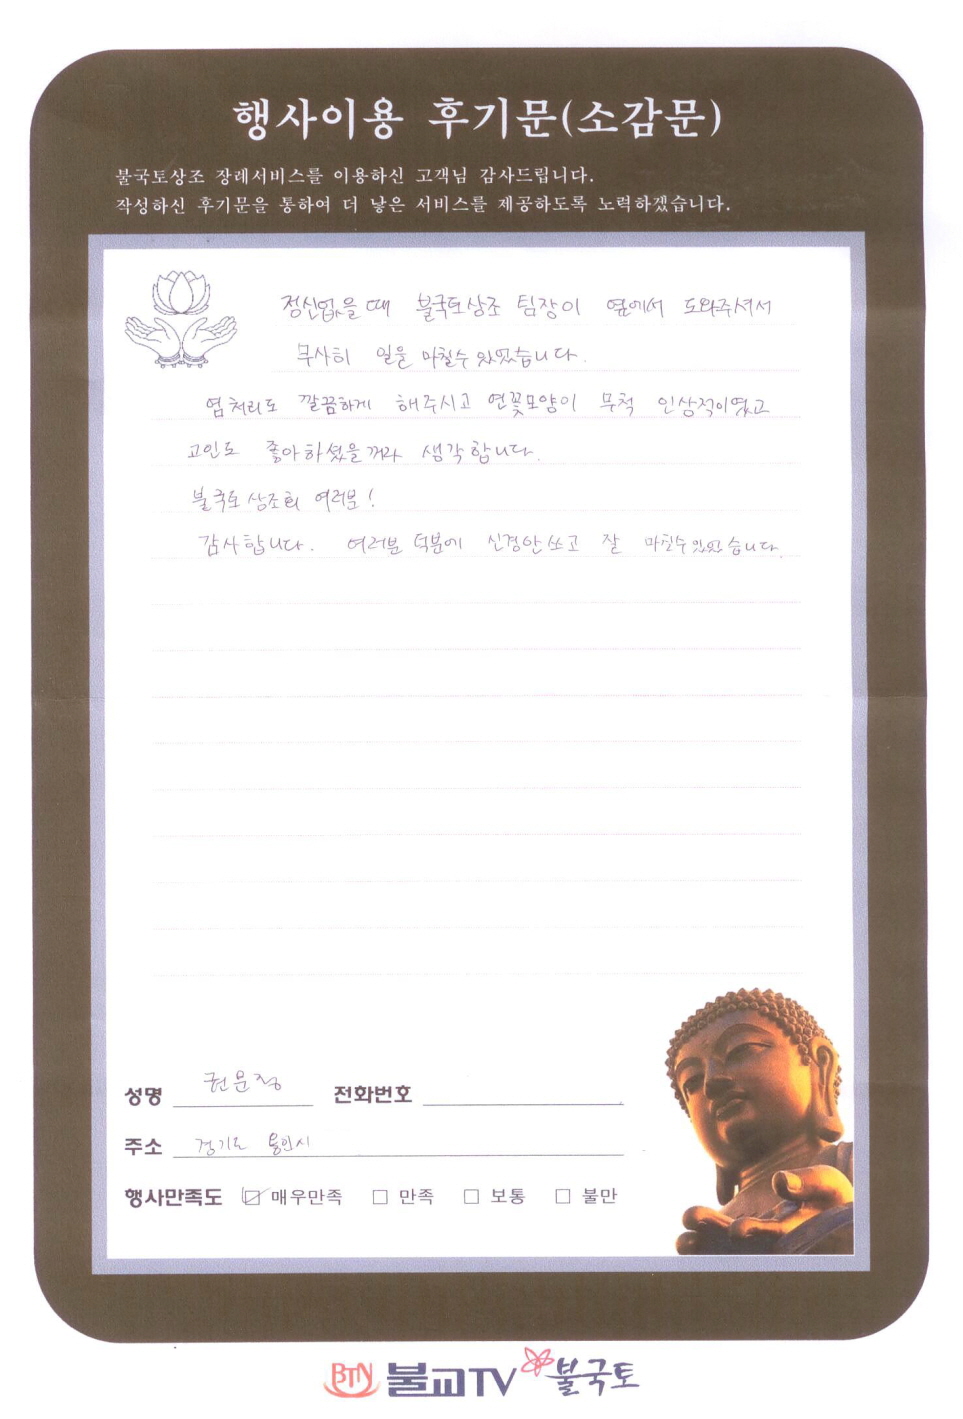 행사이용 후기문(소감문)
불국토상조 장례서비스를 이용하신 고객님 감사드립니다.
작성하신 후기문을 통하여 더 낳은 서비스를 제공하도록 노력하겠습니다.
정신없을때 불국토상조 팀장이 옆에서 도와주셔서
무사히 일을 마칠수 있었습니다.
염처리도 깔끔하게 해주시고 연꽃모양이 무척 인상적이였고
고인도 좋아하셨을꺼라 생각합니다.
불국토 상조회 여러분!
감사합니다. 여러분 덕분에 신경안쓰고 잘 마칠수있었습니다.
성명 권문정 전화번호
주소 경기도 용인시
행사만족도 ☑ 매우만족 □ 만족 □ 보통 □ 불만
BTN 불교TV 불국토